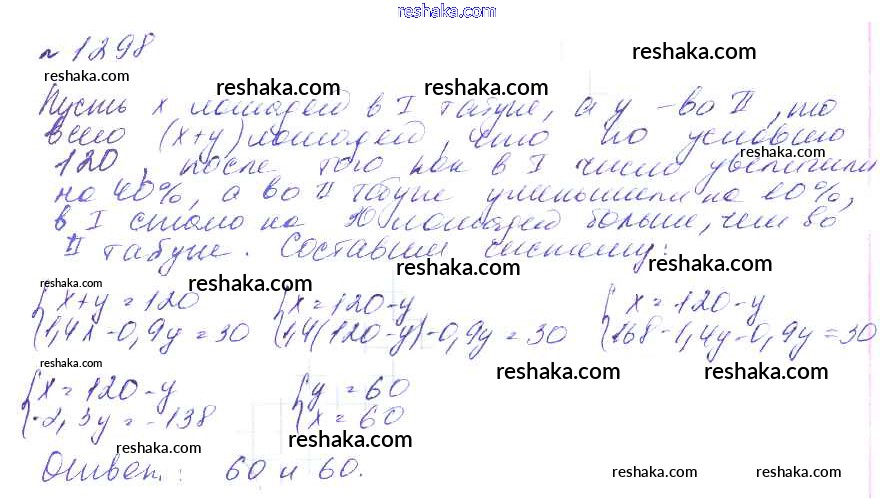 reshaka.com
№ 1298
reshaka.com
reshaka.com
reshaka.com reshaka.com
Пусть x лошадей в I табуне, а y – во II, то
всего (x+y) лошадей, что по условию
reshaka.com
120, после того как в I число увеличили
reshaka.com
на 40%, а во II табуне уменьшили на 10%,
в I стало на 30 лошадей больше, чем во
reshaka.com
II табуне. Составим систему:
reshaka.com reshaka.com
reshaka.com
{x+y=120 {x=120-y {x=120-y
{1,4x-0,9y=30 {1,4(120-y)-0,9y=30 {168-1,4y-0,9y=30
reshaka.com
reshaka.com reshaka.com
{x=120-y {y=60
{-2,3y=-138 {x=60
reshaka.com reshaka.com
Ответ: 60 и 60.
reshaka.com reshaka.com